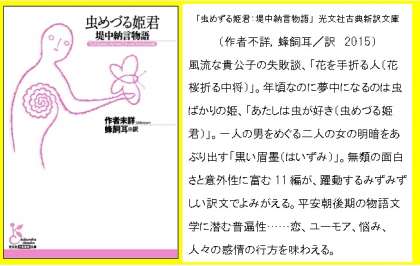 虫めづる姫君
堤中納言物語
作者未詳
蜂飼耳◎訳
「虫めづる姫君:堤中納言物語」光文社古典新訳文庫
(作者不詳, 蜂飼耳/訳 2015)
風流な貴公子の失敗談、「花を手折る人(花
桜折る中将)」。年頃なのに夢中になるのは虫
ばかりの姫、「あたしは虫が好き(虫めづる姫
君)」。一人の男をめぐる二人の女の明暗をあ
ぶり出す「黒い眉墨(はいずみ)」。無類の面白
さと意外性に富む11編が、躍動するみずみず
しい訳文でよみがえる。平安朝後期の物語文
学に潜む普遍性……恋、ユーモア、悩み、
人々の感情の行方を味わえる。